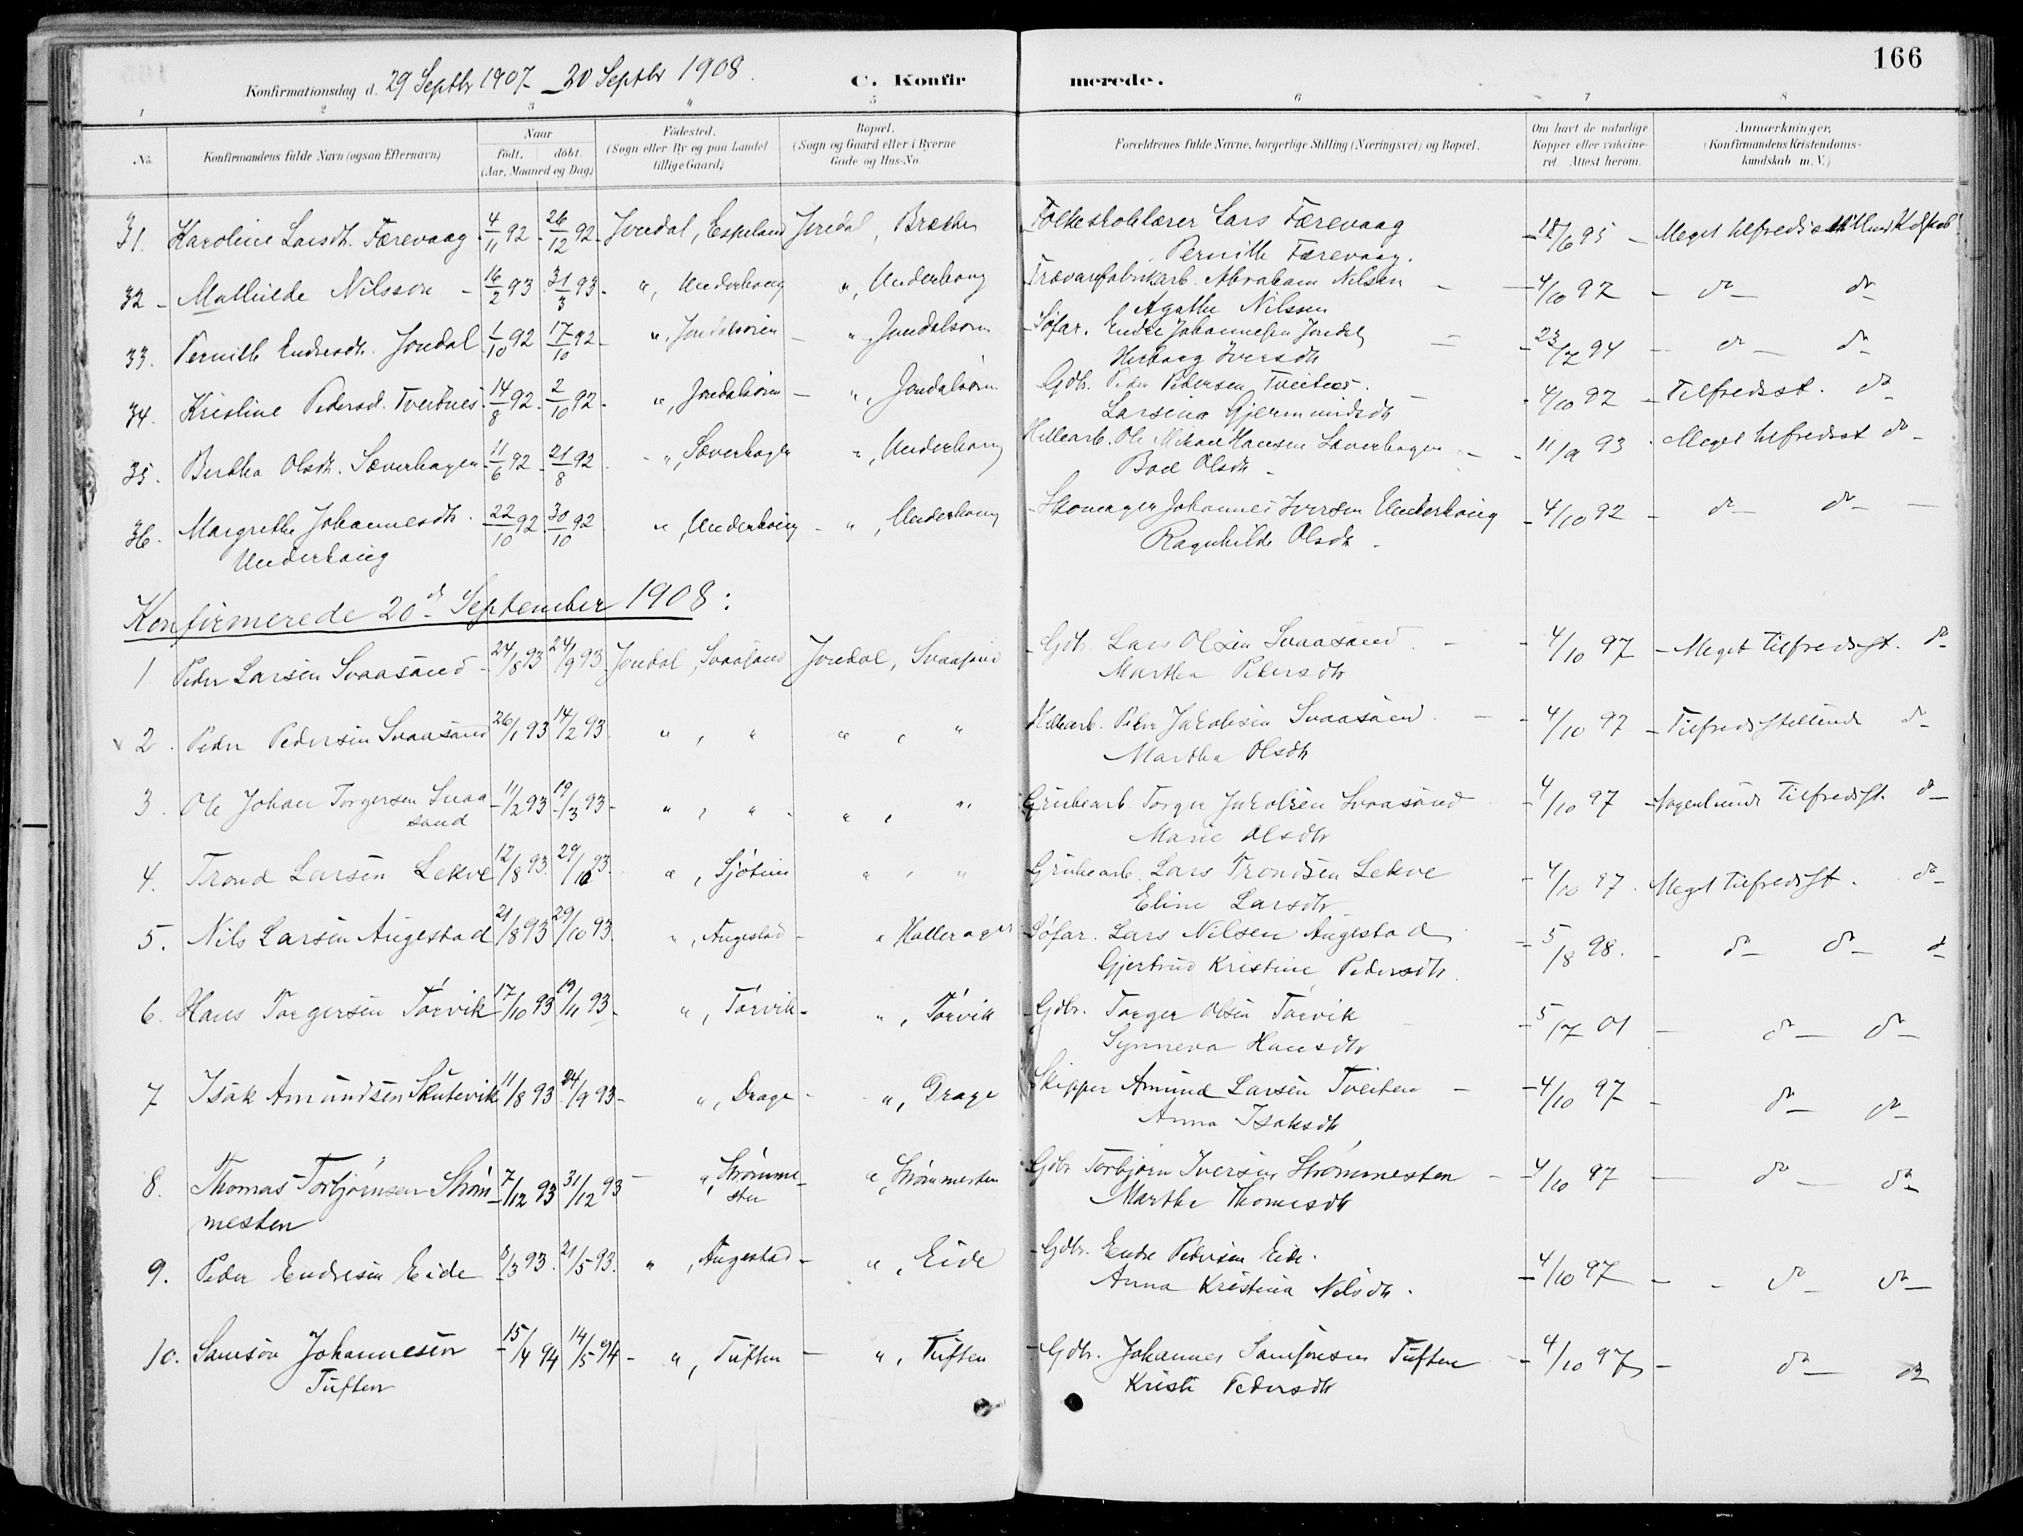 166
Konfirmationsdag d. 29 Septbr 1907 - 20 Septbr 1908.
C. Konfir merede.
1 2 3 4 5 6 7 8
No. Konfirmandens fulde Navn (ogsaa Efternavn) Naar født. døbt. (Aar, Maaned og Dag) Fødested. (Sogn eller By og paa Landet tillige Gaard) Bopæl. (Sogn og Gaard eller i Byerne Gade og Hus-No. Forældrenes fulde Navne, borgerlige Stilling (Næringsvei) og Bopæl. Om havt de naturlige Kopper eller vaccineret Attest herom. Anmærkninger. (Konfirmandens Kristendomskundskab m. V.)
31. Karoline Larsdtr. Færevaag 4/11 92 26/12 92 Jondal, Espeland Jondal, Folkeskolelærer Lars Færevaag 18/6 95 Meget tilfredsst.
Pernille Færevaag.
32 - Mathilde Nilsson - 16/2 93 31/3 93 " , Underhaug " , Underhaug Trævarefabrikarb. Abraham Nilsen 4/10 97 - do - do
Agathe Nilsen
33. Pernille Endresdtr. Jondal 1/10 92 17/10 92 " , Jondalsøren " , Jondalsøren Søfar. Endre Johannesen Jondal 23/7 94 - do - do
Herborg Iversdtr
34. Kristine Pedersd. Tveitnes 14/8 92 2/10 92 " , Jondalsøren " , Jondalsøren Gdbr. Peder Pedersen Tveitnes 4/10 97 - Tilfredsst. do
Larsina Gjermundsdtr
35. Bertha Olsdtr. Sæverhagen 11/6 92 21/8 92 " , Sæverhagen " , Underhaug Ole Mikael Hansen Sæverhagen 11/9 93 Meget tilfredsst do -
Olsdtr
36. Margrethe Johannesdtr. 22/10 92 30/10 92 " , Underhaug - " , Underhaug Skomager Johannes Iversen Underhaug 4/10 92 - do - do -
Underhaug Ragnhilde Olsdtr.
Konfirmerede 20de September 1908:
1. Peder Larsen Svaasand 24/8 93 24/9 93 Jondal, Svaasand Jondal, Svaasand Gdb. Lars Olsen Svaasand 4/10 97 - Meget tilfredsst. do
Martha Pedersdtr
2. Peder Pedersen Svaasand 26/1 93 14/2 93 " , " " , " Peder Jakobsen Svaasand 4/10 97 - Tilfredsstillende do
Martha Olsdtr
3. Ole Johan Torgersen Svaa 11/2 93 19/3 93 " , " " , " Grubearb. Torger Jakobsen Svaasand 4/10 97 - Nogenlunde tilfredsst. do
sand Marie Olsdtr
4. Trond Larsen Lekve 12/8 93 29/10 93 " , " , " Grubearb. Lars Trondsen Lekve 4/10 97. Meget tilfredsst. do
Eline Larsdtr
5. Nils Larsen Augestad 21/8 93 29/10 93 " , Augestad - " Hallerager Søfar. Lars Nilsen Augestad 5/8 98. - do - do - do
Gjertrud Kristine Pedersdtr.
6. Hans Torgersen Tørvik 17/10 93 19/11 93 " , Tørvik - " , Tørvik Gdbr. Torger Olsen Tørvik 5/7 01 - do - do -
Synneva Hansdtr
7 Isak Amundsen Skutevik 11/8 93 24/9 93 - " , Drage - " , Drage Skipper Amund Larsen Tveiten 4/10 97 - do - do -
Anna Isaksdtr
8. Thomas Torbjørnsen Strøm 7/12 93 31/12 93 - " , Strømme- " , Strømmesten Gdbr Torbjørn Iversen Strømmesten 4/10 97 - do - do -
mesten sten Marthe Thomsdtr
9. Peder Endresen Eide 8/3 93. 21/5 93. " , Augestad - " , Eide Gdbr. Endre Pedersen Eide. 4/10 97 - do do -
Anna Kristina Nilsdtr.
10. Samson Johannesen 15/4 94 14/5 94 - " , Tuften - " , Tuften Gdbr. Johannes Samsonsen Tuften 4/10 97 - do - do
Tuften Kristi Pedersdtr